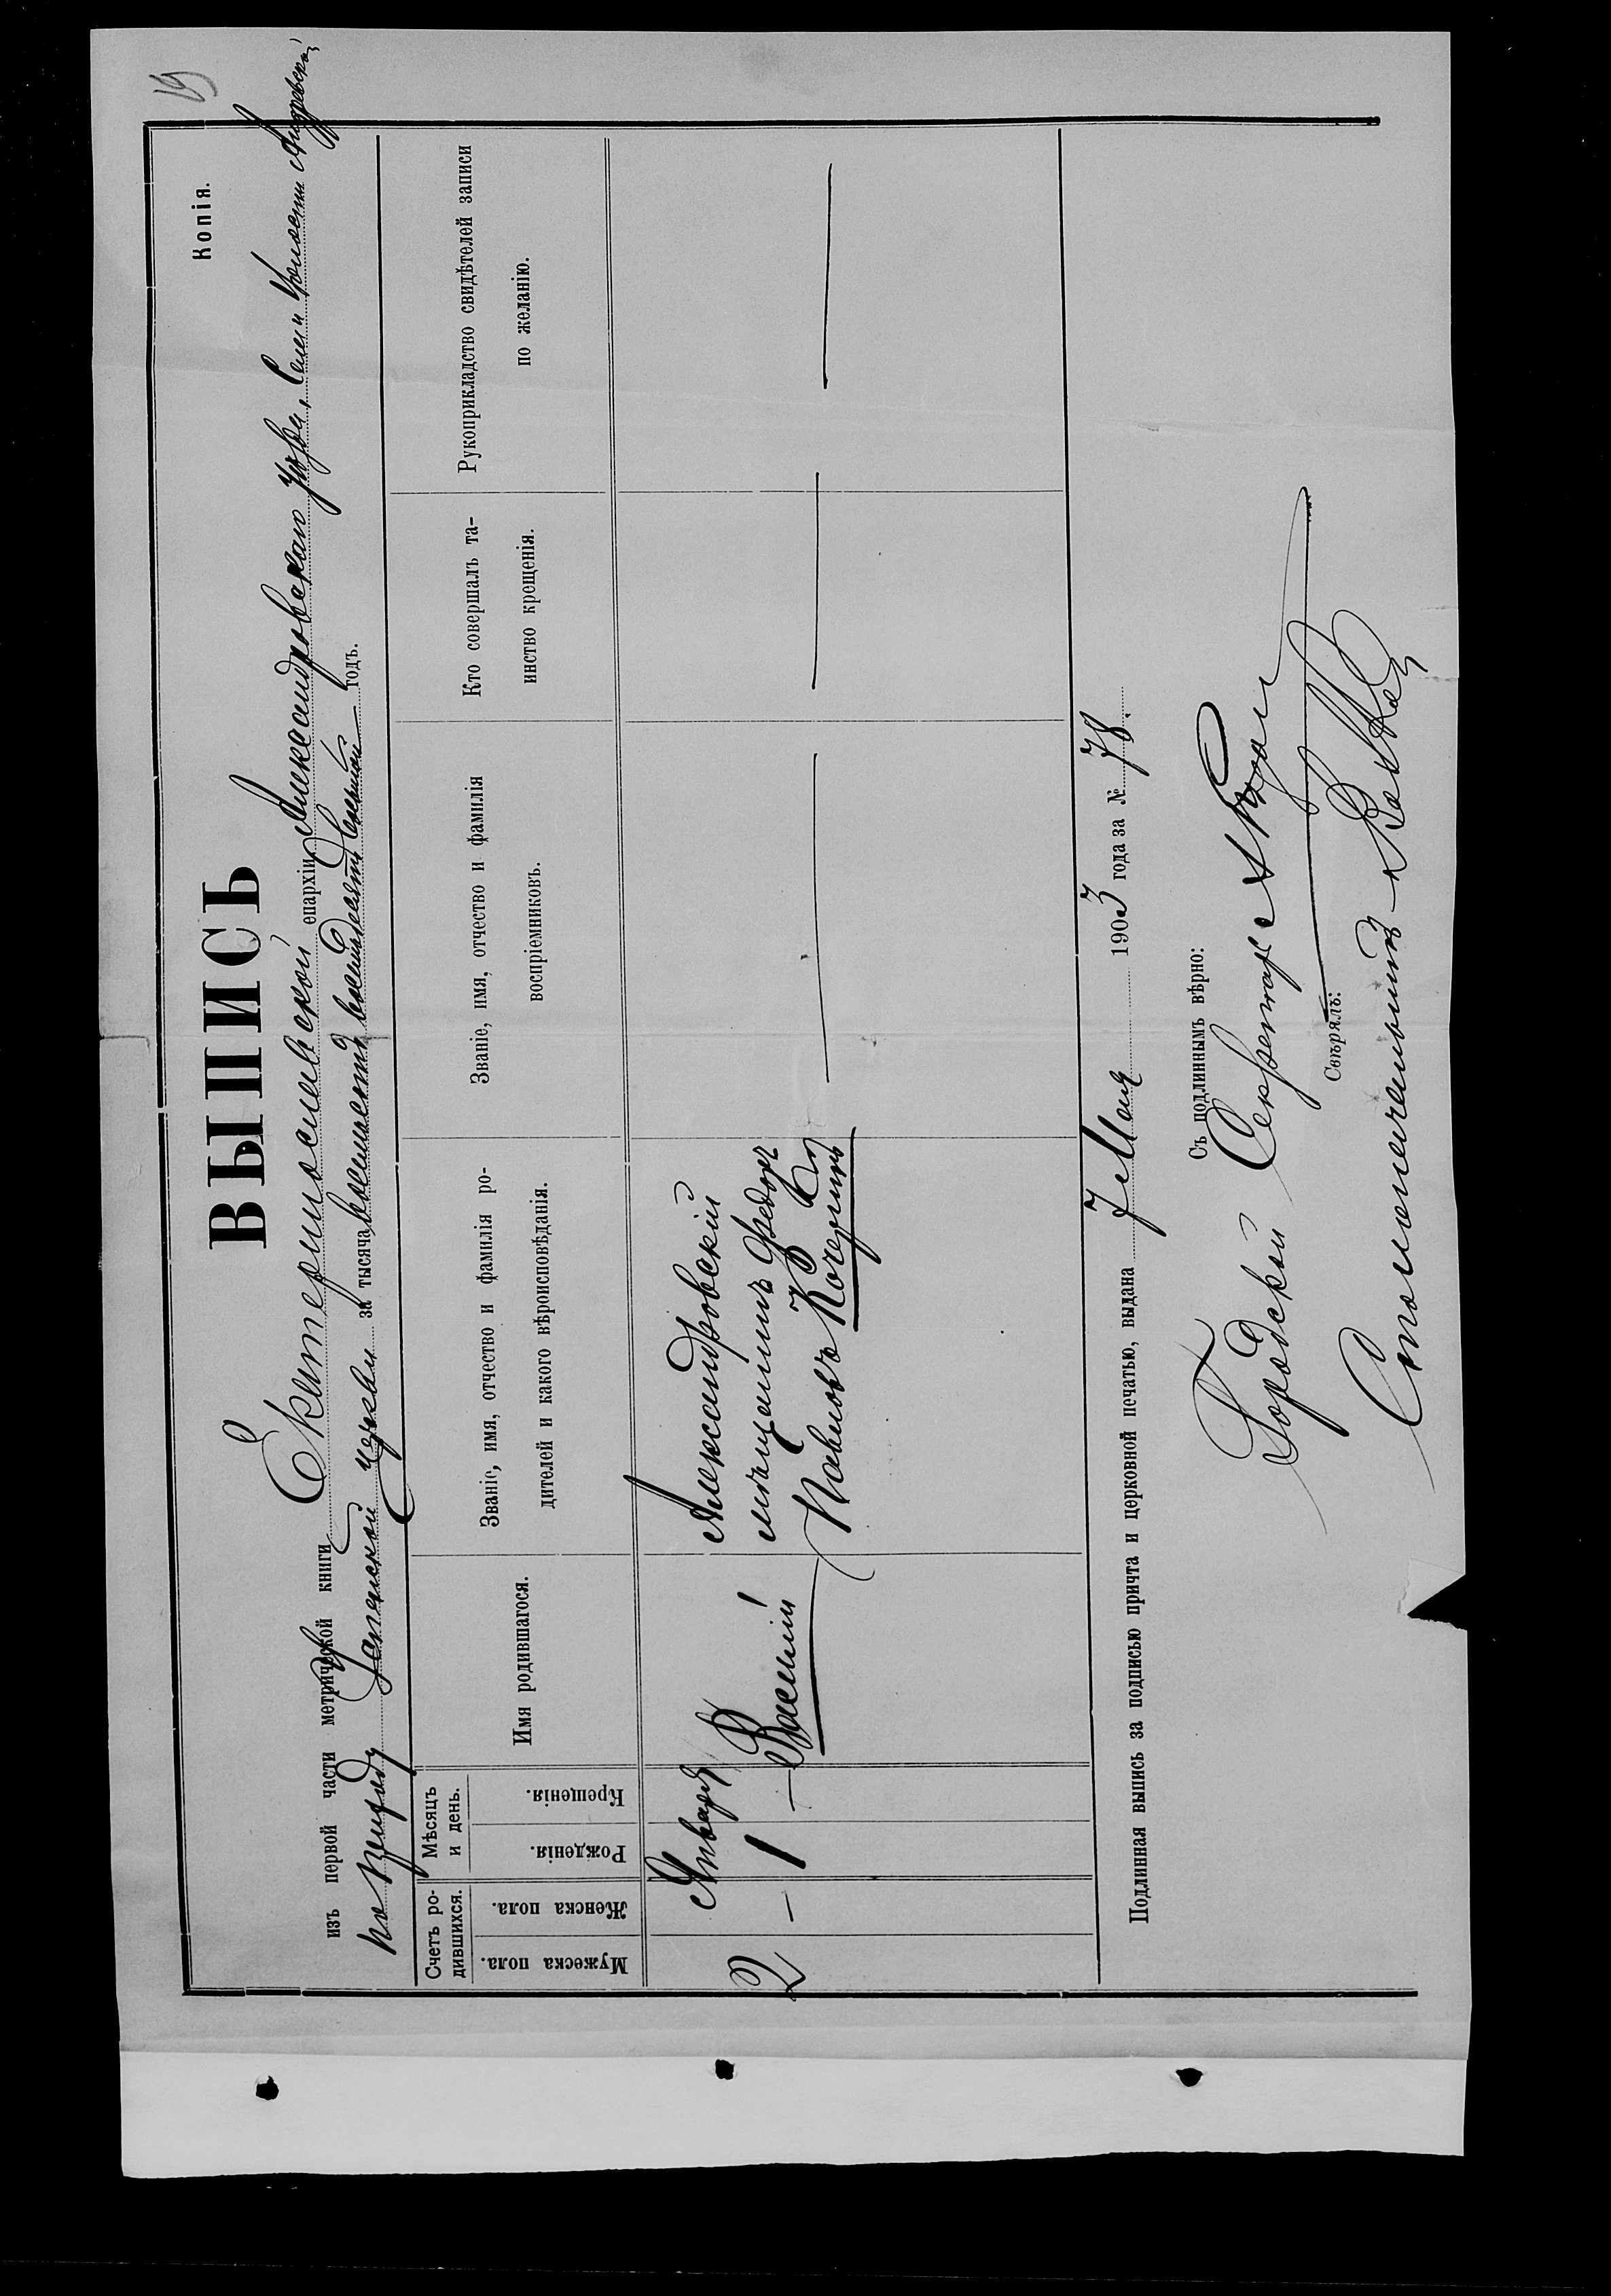 Копія.
ВЫПИСЬ
изъ первой части метрической книги Екатеринославской епархіи, Александровскаго уѣзда, Села и Волости Андреевской
по Успенской церкви за тысяча восемьсотъ восемьдесятъ восьмой годъ.
Счетъ ро-
дившихся.
Мужеска пола.
Женска пола.
Мѣсяцъ
и день.
Рожденія.
Крещенія.
Имя родившагося.
Званіе, имя, отчество и фамилія ро-
дителей и какого вѣроисповѣданія.
Званіе, имя, отчество и фамилія
воспріемниковъ.
Кто совершалъ та-
инство крещенія.
Рукоприкладство свидѣтелей записи
по желанію.
Января
2 — 1 — Василій
Александровскій
мѣщанинъ Ѳедоръ
Павловъ Кочеринъ
Подлинная выпись за подписью причта и церковной печатью, выдана 7 Мая 1903 года за № 78.
Съ подлиннымъ вѣрно:
Городской Секретарь
Свѣрялъ:
Столоначальникъ